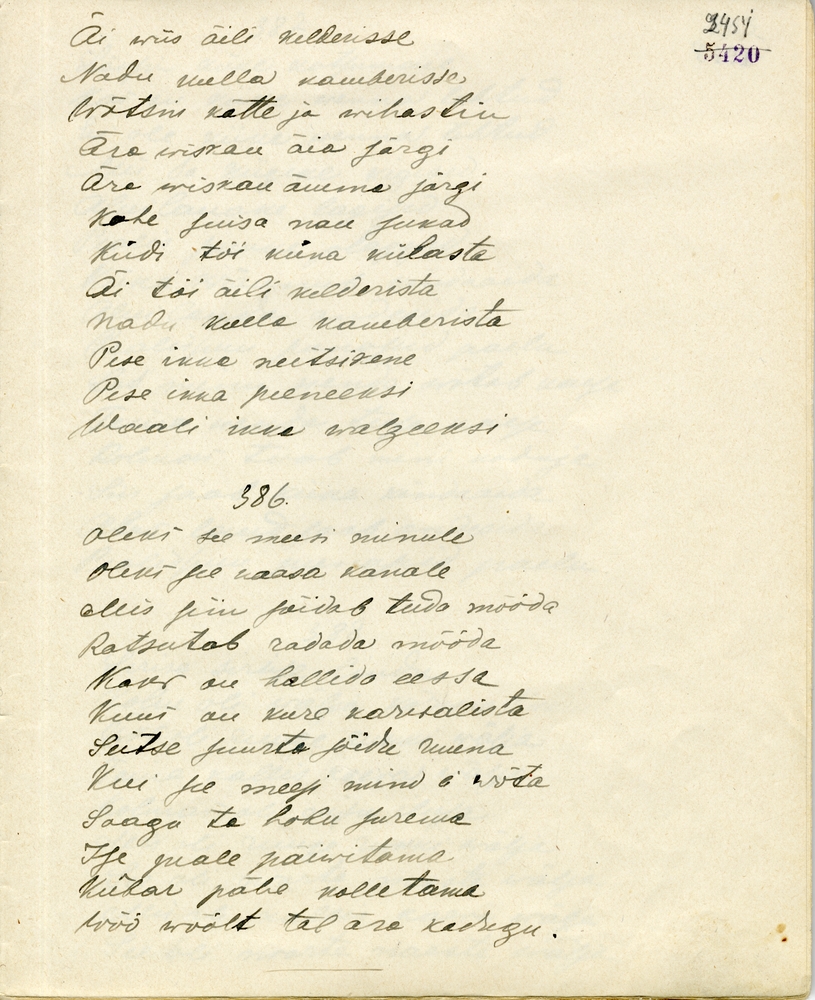 2454
5420
Äi wiis äili kelderisse
Nadu kulla kamberisse
Wõtsin kätte ja wihastin
Ära wiskan äia järgi
Ära wiskan ämma järgi
Kahe suisa nau sukad
Küdi tõi küna külasta
Äi tõi äili kelderista
Nadu kulla kamberista
Pese ikka neitsikene
Pese ikka peeneeksi
Waali ikka walgeeksi
386.
Oleks see meesi minule
Oleks see kaasa kanale
Mis siin sõidab teeda mööda
Ratsutab radada mööda
Kaks on hallida eessa
Kuus on kure karwalista
Seitse suurta sõidu ruuna
Kui see meesi mind ei wõta
Saagu ta hobu surema
Ise peale päiwitama
Kübar pähe kolletama
Wöö wöölt tal ära kadugu.